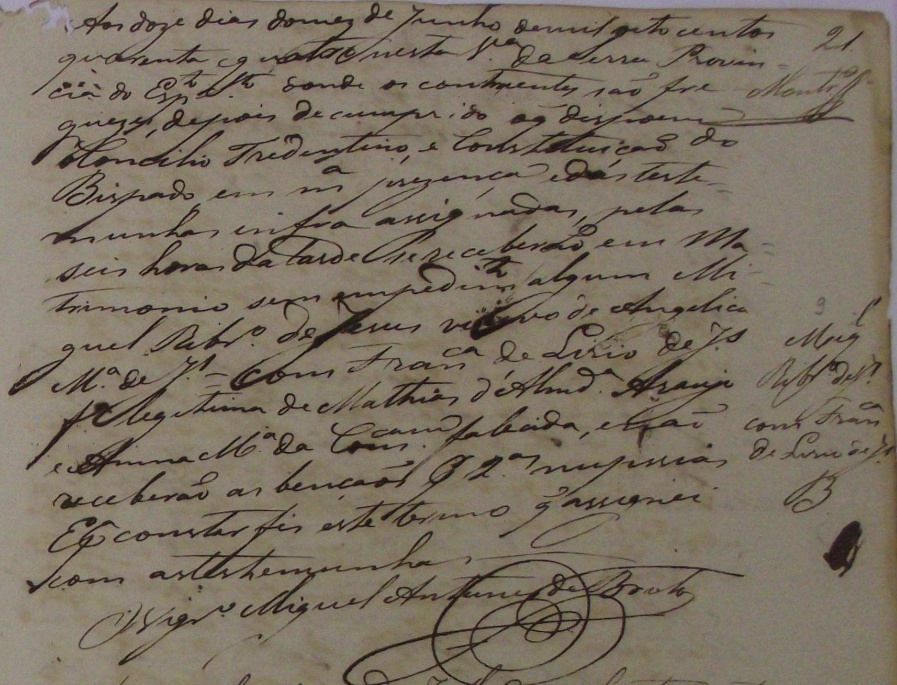 Aos doze dias domez de Junho demil oito centos
quarenta equatro nesta Va. da Serra Provin-
cia do Espto. Sto. donde os contrahentes são fre
guezes, depois de cumprido oq dispoem
Concilio Tredentino, e Constetuição do
Bispado, em ma. prezença, edas teste-
munhas infra assignadas, pelas
seis horas da tarde se receberão, em Ma-
trimonio sem impedimto. algum Mi-
guel Ribro. de Jesus viuvo de Angelica
Ma. de Js. = com Franca. de Lirio de Js
fa. legitima de Mathias d'Almda. Araujo
e Anna Ma. da Concam. falecida, e não
receberão as bençaõs P 2as. nupcias
E pa. constar fis este termo q assignei
com astestemunhas
O Vigro. Miguel Antunes de Brito
21
Migl
Ribro de Js.
com Fran
de Lirio de Js
B